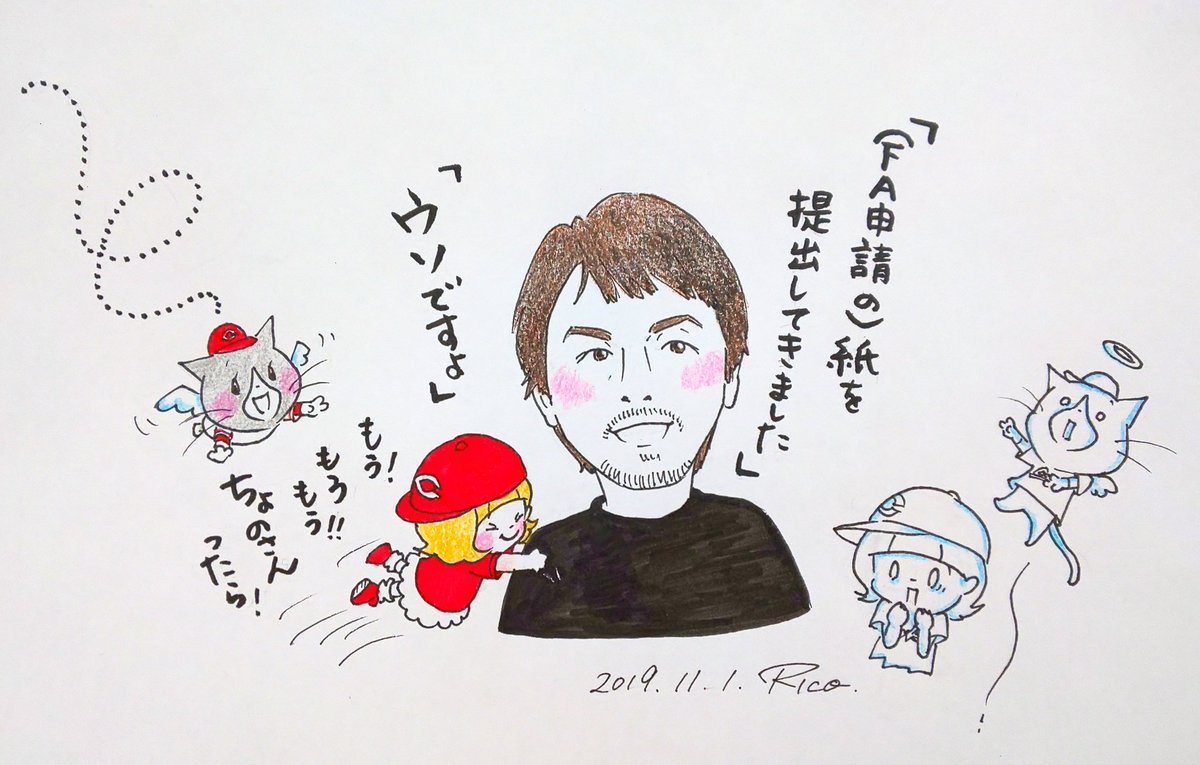 「(FA申請の)紙を
提出してきました」
「ウソですょ」
もう!
もろ
もう!!
ちょのさん
ったら!
2019.11.1. Rico.